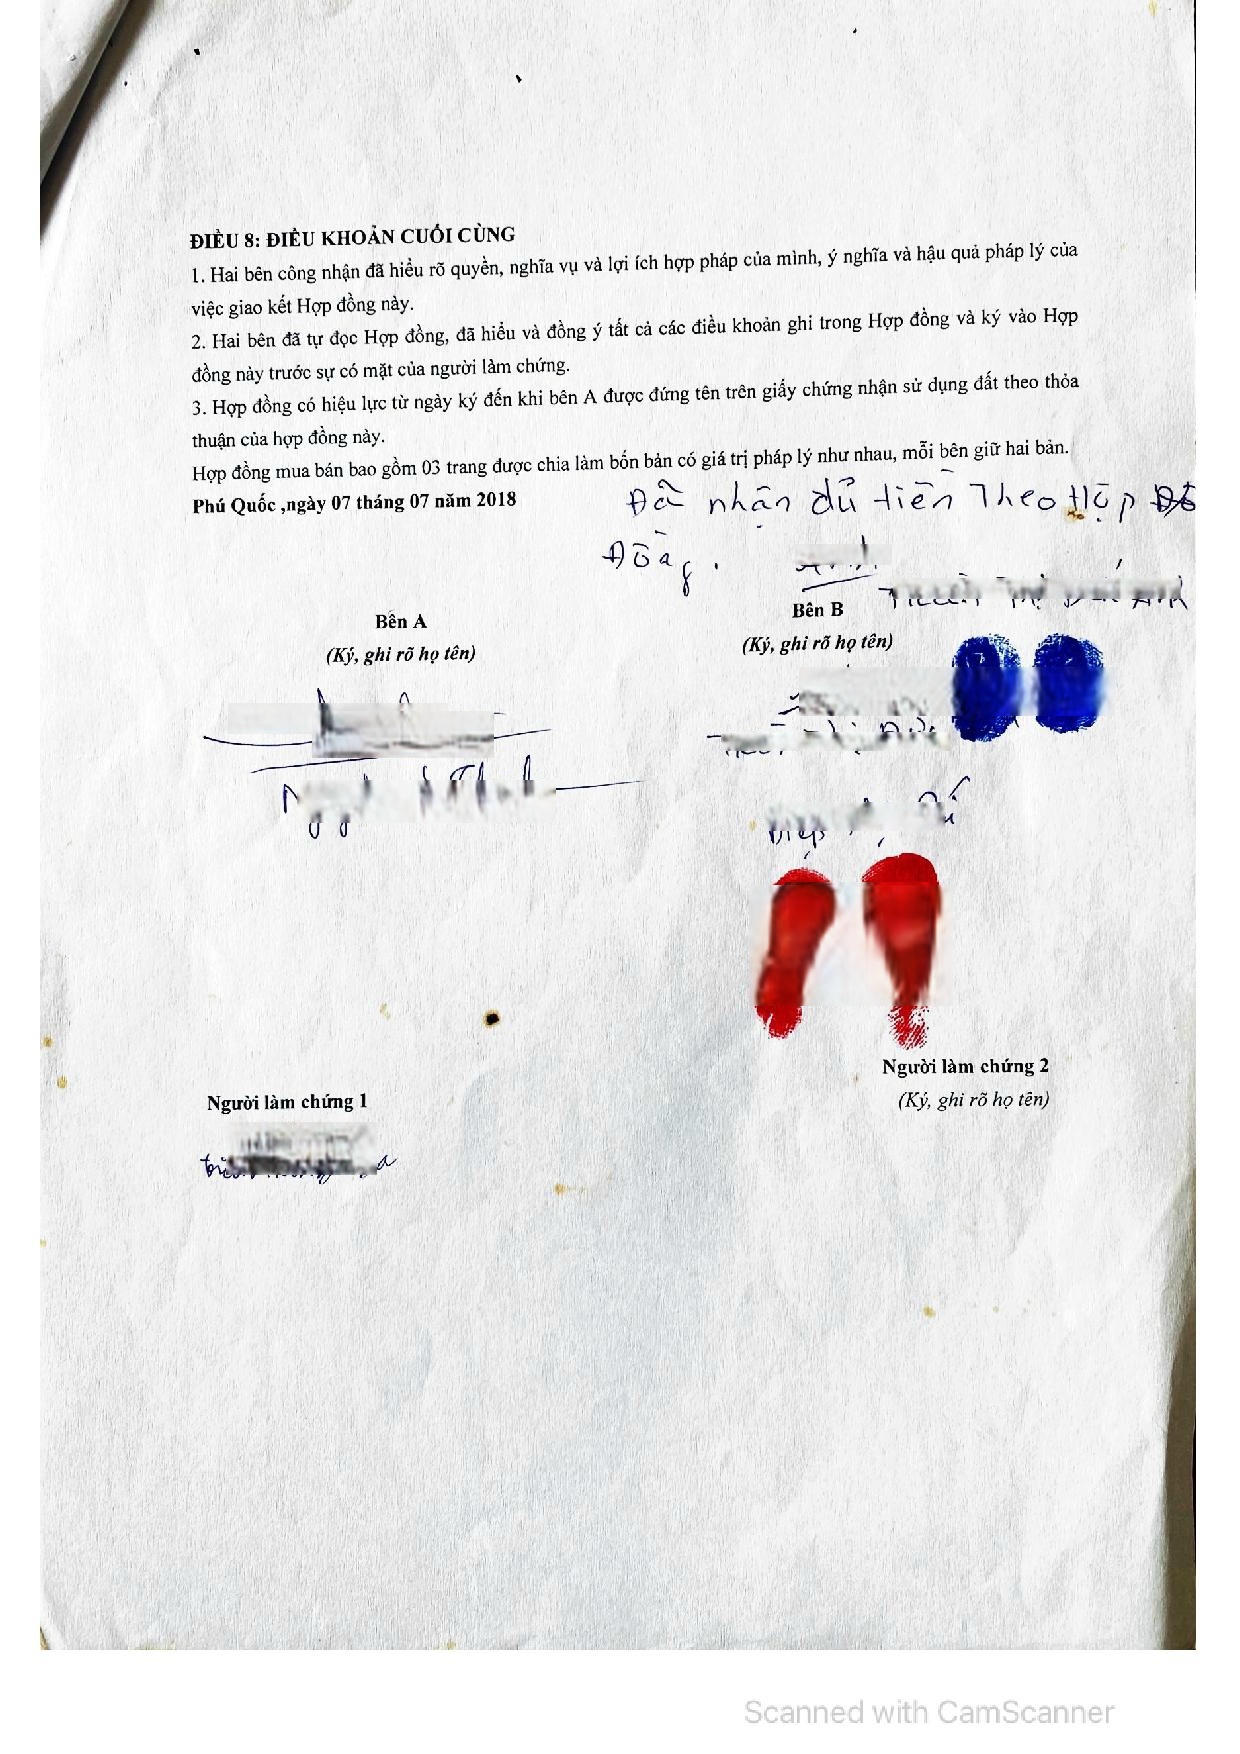 ĐIỀU 8: ĐIỀU KHOẢN CUỐI CÙNG
1. Hai bên công nhận đã hiểu rõ quyền, nghĩa vụ và lợi ích hợp pháp của mình, ý nghĩa và hậu quả pháp lý của
việc giao kết Hợp đồng này.
2. Hai bên đã tự đọc Hợp đồng, đã hiểu và đồng ý tất cả các điều khoản ghi trong Hợp đồng và ký vào Hợp
đồng này trước sự có mặt của người làm chứng.
3. Hợp đồng có hiệu lực từ ngày ký đến khi bên A được đứng tên trên giấy chứng nhận sử dụng đất theo thỏa
thuận của hợp đồng này.
Hợp đồng mua bán bao gồm 03 trang được chia làm bốn bản có giá trị pháp lý như nhau, mỗi bên giữ hai bản.
Phú Quốc ,ngày 07 tháng 07 năm 2018
Đã nhận đủ tiền Theo Hợp
Đồng.
Bên A
(Ký, ghi rõ họ tên)
Bên B
(Ký, ghi rõ họ tên)
Người làm chứng 1
Người làm chứng 2
(Ký, ghi rõ họ tên)
Scanned with CamScanner